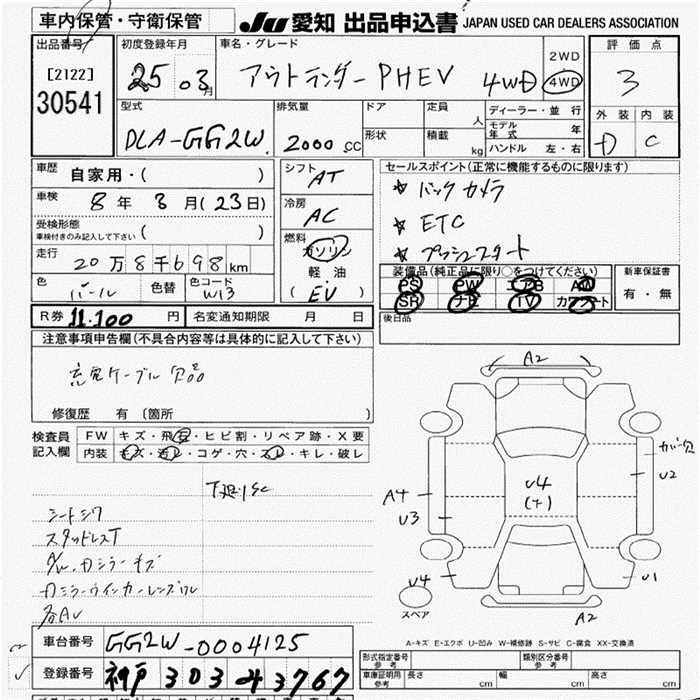 車内保管・守衛保管
JU 愛知 出品申込書 JAPAN USED CAR DEALERS ASSOCIATION
出品番号
[2122]
30541
初度登録年月
25 03月
車名・グレード
アウトランダー PHEV 4WD
2WD
4WD
評価点
3
外装 内装
D C
型式
DLA-GG2W.
排気量
2000 CC
ドア
形状
定員
人
積載
kg
ディーラー・並行
モデル年式 年
ハンドル 左・右
車歴
自家用・( )
車検
8年 3月(23日)
受検形態
車検付きのみ記入して下さい ( )
走行
20万8千698km
色
パール
色替
色コード
W13
シフト
AT
冷房
AC
燃料
ガソリン
軽油
(EV)
セールスポイント(正常に機能するものに限ります)
バックカメラ
ETC
プッシュスタート
装備品(純正品に限り○をつけてください)
PS PW エアB AW
SR ナビ TV カワシート
新車保証書
有・無
後日品
R券 11,100 円
名変通知期限 月 日
注意事項申告欄(不具合内容等は具体的に記入して下さい)
充電ケーブル欠品
修復歴 有 (箇所 )
検査員記入欄
FW キズ・飛石・ヒビ割・リペア跡・X要
内装 キズ・汚レ・コゲ・穴・スレ・キレ・破レ
下廻りSC
シートシワ
スタッドレスT
A/W、Dミラーキズ
Dミラーウインカーレンズワレ
各AU
A2
カバー欠
U2
A4
U3
U4
(ナ)
U4
スペア
U1
A2
A-キズ E-エクボ U-凹み W-補修跡 S-サビ C-腐食 XX-交換済
車台番号 GG2W-0004125
登録番号 神戸 303 る3767
形式指定番号 参考
類別区分番号 参考
車庫証明用 参考
長さ cm
幅 cm
高さ cm